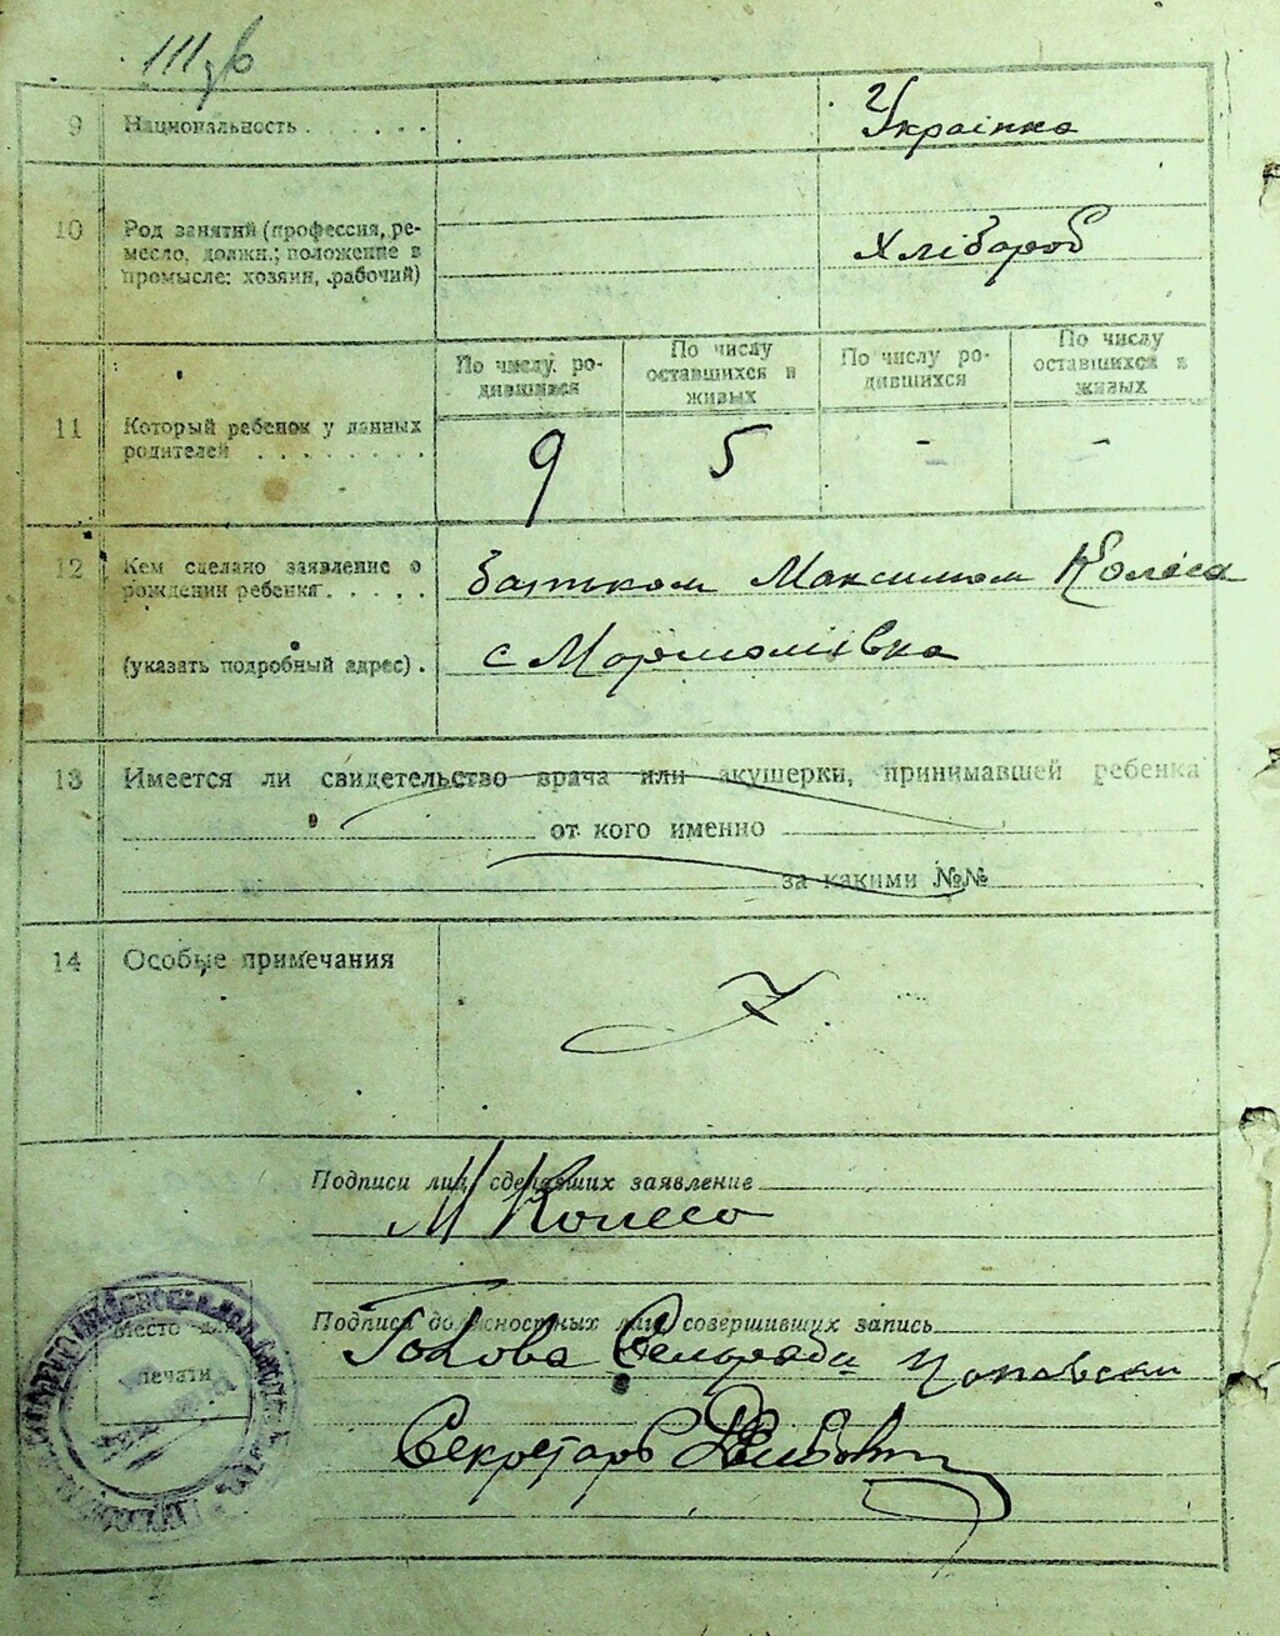 9 Национальность . . . . . . Українка
10 Род занятий (профессия, ре-
месло, должн.; положение в
промысле: хозяин, рабочий)
Хлібороб
По числу ро-
дившихся
По числу
оставшихся в
живых
По числу ро-
дившихся
По числу
оставшихся в
живых
11 Который ребенок у данных
родителей . . . . . . . .
9 5 - -
12 Кем сделано заявление о
рождении ребенка . . . . .
батьком Максимом Колеса
(указать подробный адрес) .
с Мормолиівка
13 Имеется ли свидетельство врача или акушерки, принимавшей ребенка
от кого именно
за какими №№
14 Особые примечания
Подписи лиц, сделавших заявление
М Колесо
Подписи должностных лиц, совершивших запись
Голова Сельради
Секретарь
Место для
печати